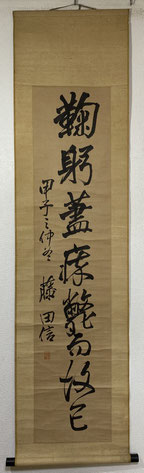 鞠躬蓋瘁斃而後已
甲子之仲冬 藤田信